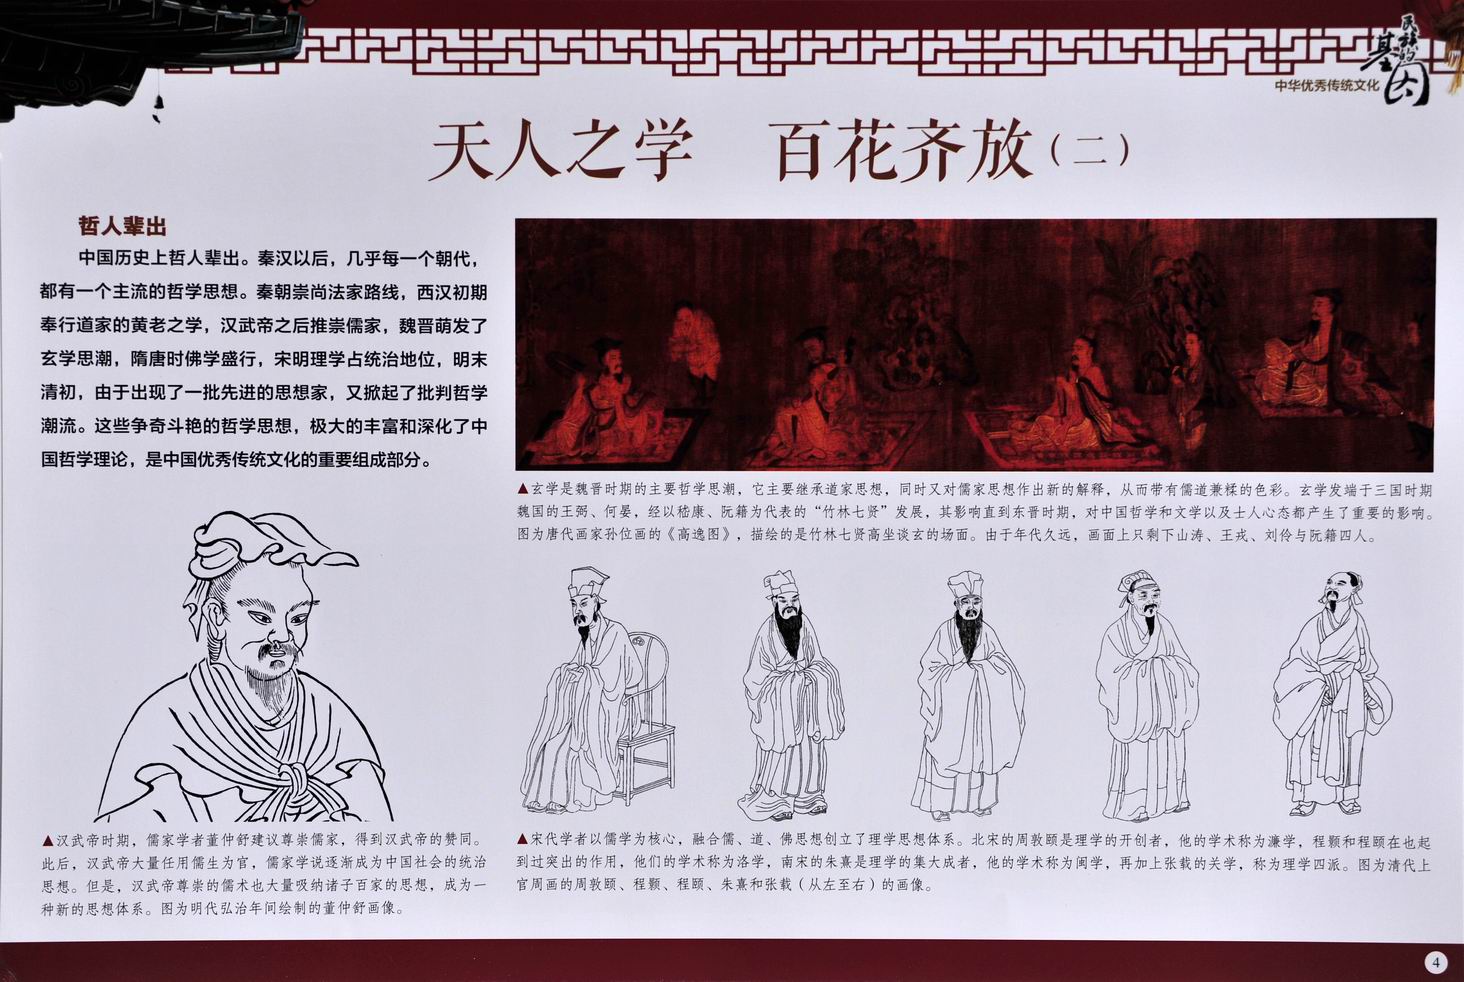 民族的
基因
中华优秀传统文化
天人之学 百花齐放（二）
哲人辈出
中国历史上哲人辈出。秦汉以后，几乎每一个朝代，
都有一个主流的哲学思想。秦朝崇尚法家路线，西汉初期
奉行道家的黄老之学，汉武帝之后推崇儒家，魏晋萌发了
玄学思潮，隋唐时佛学盛行，宋明理学占统治地位，明末
清初，由于出现了一批先进的思想家，又掀起了批判哲学
潮流。这些争奇斗艳的哲学思想，极大的丰富和深化了中
国哲学理论，是中国优秀传统文化的重要组成部分。
▲玄学是魏晋时期的主要哲学思潮，它主要继承道家思想，同时又对儒家思想作出新的解释，从而带有儒道兼糅的色彩。玄学发端于三国时期
魏国的王弼、何晏，经以嵇康、阮籍为代表的“竹林七贤”发展，其影响直到东晋时期，对中国哲学和文学以及士人心态都产生了重要的影响。
图为唐代画家孙位画的《高逸图》，描绘的是竹林七贤高坐谈玄的场面。由于年代久远，画面上只剩下山涛、王戎、刘伶与阮籍四人。
▲汉武帝时期，儒家学者董仲舒建议尊崇儒家，得到汉武帝的赞同。
此后，汉武帝大量任用儒生为官，儒家学说逐渐成为中国社会的统治
思想。但是，汉武帝尊崇的儒术也大量吸纳诸子百家的思想，成为一
种新的思想体系。图为明代弘治年间绘制的董仲舒画像。
▲宋代学者以儒学为核心，融合儒、道、佛思想创立了理学思想体系。北宋的周敦颐是理学的开创者，他的学术称为濂学，程颢和程颐在也起
到过突出的作用，他们的学术称为洛学，南宋的朱熹是理学的集大成者，他的学术称为闽学，再加上张载的关学，称为理学四派。图为清代上
官周画的周敦颐、程颢、程颐、朱熹和张载（从左至右）的画像。
4